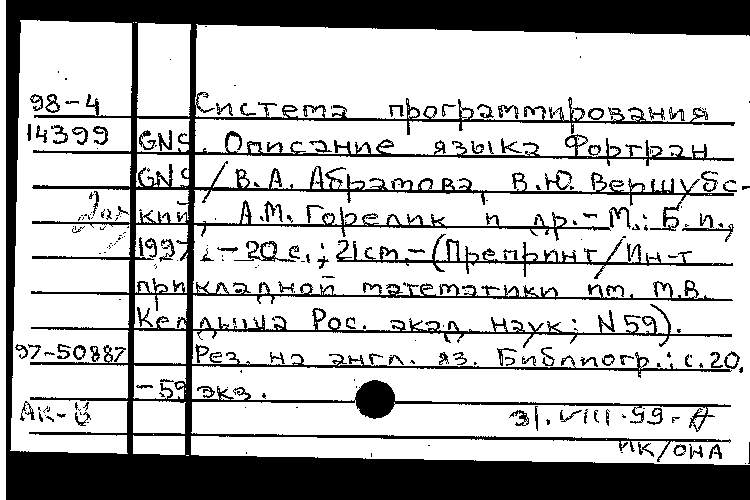 98-4 Система программирования
14399 GNS. Описание языка Фортран
GNS / В.А. Абрамова, В.Ю. Вершубс-
кий, А.М. Горелик и др. - М.: Б.и.,
1997. - 20 с.; 21 cm. - (Препринт / Ин-т
прикладной математики им. М.В.
Келдыша Рос. акад. наук; N 59).
97-50887 Рез. на англ. яз. Библиогр.: с. 20.
- 59 экз.
АК-8 31.VIII.99-А
ИК/ОНА